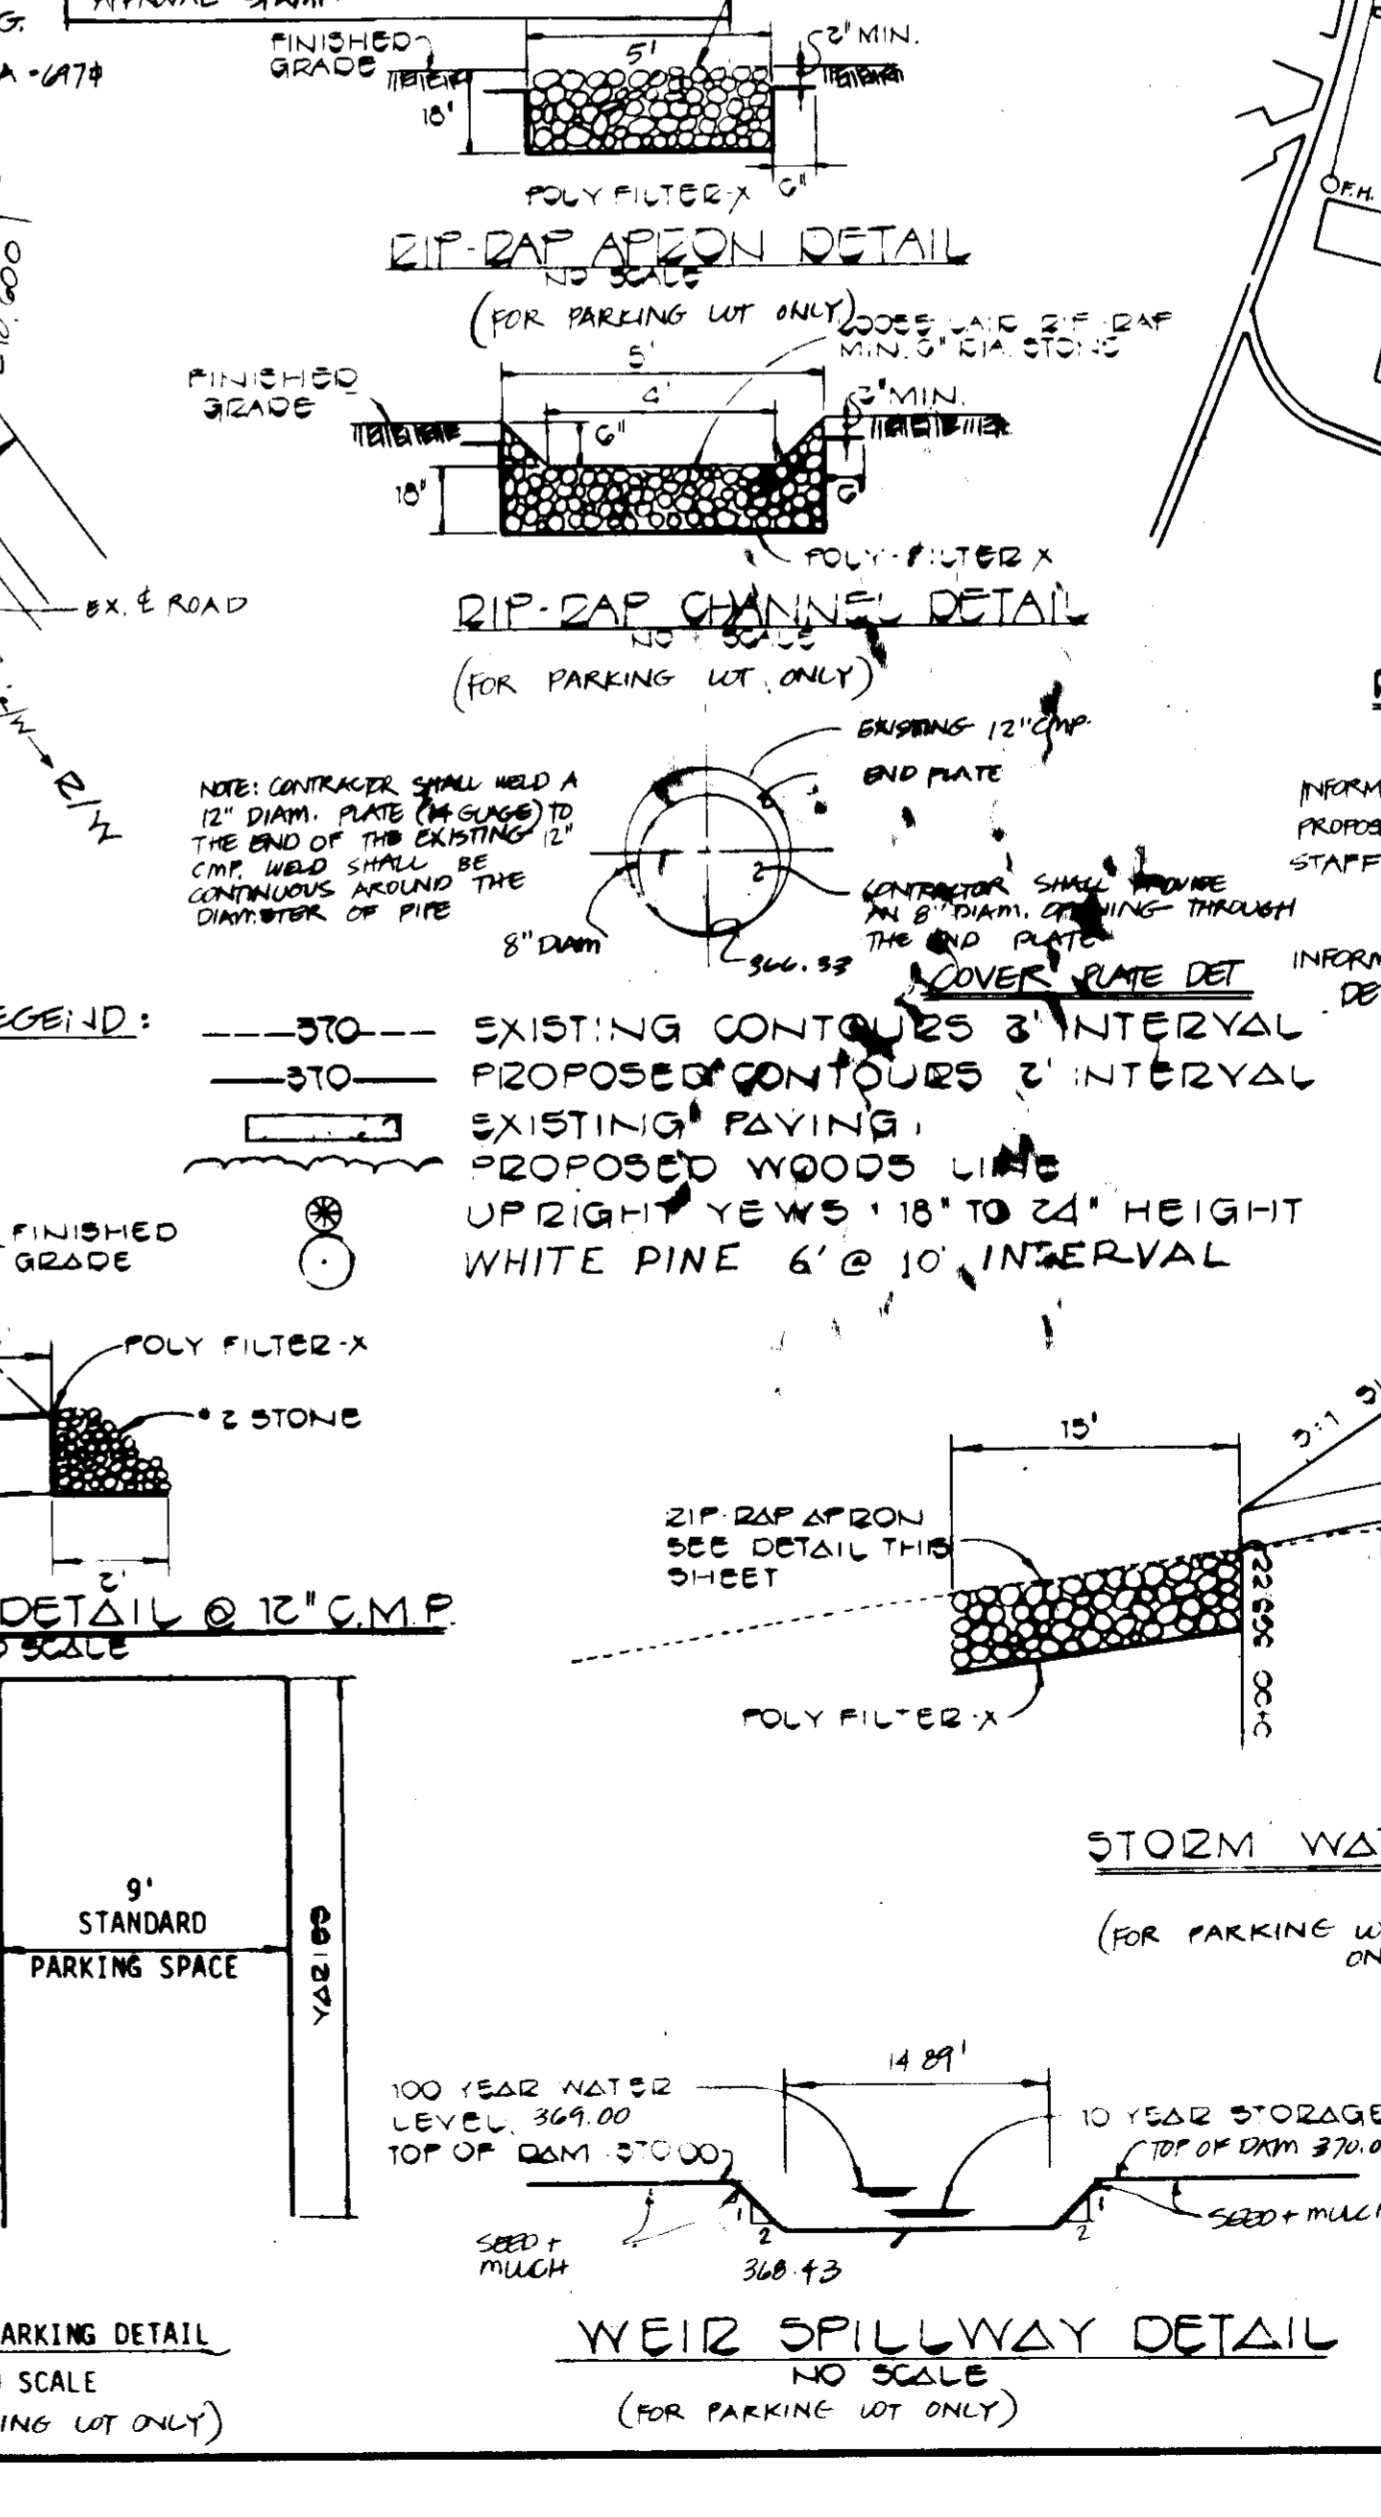 FINISHED
GRADE
5'
2" MIN.
18'
6"
POLY FILTER-X
RIP-RAP APRON DETAIL
NO SCALE
(FOR PARKING LOT ONLY)
LOOSE LAID RIP-RAP
MIN. 6" DIA. STONE
5'
4'
FINISHED
GRADE
2" MIN.
6"
18"
6"
POLY-FILTER X
RIP-RAP CHANNEL DETAIL
NO SCALE
(FOR PARKING LOT ONLY)
F.H.
EX. ℄ ROAD
R/W
EXISTING 12" CMP.
END PLATE
NOTE: CONTRACTOR SHALL WELD A
12" DIAM. PLATE (14 GUAGE) TO
THE END OF THE EXISTING 12"
CMP. WELD SHALL BE
CONTINUOUS AROUND THE
DIAMETER OF PIPE
CONTRACTOR SHALL PROVIDE
AN 8" DIAM. OPENING THROUGH
THE END PLATE
8" DIAM
366.33
COVER PLATE DET
INFORM
PROPOS
STAFF
INFORM
DE
EGEND:
370 EXISTING CONTOURS 2' INTERVAL
370 PROPOSED CONTOURS 2' INTERVAL
EXISTING PAVING
PROPOSED WOODS LINE
UPRIGHT YEWS 18" TO 24" HEIGHT
WHITE PINE 6' @ 10' INTERVAL
FINISHED
GRADE
POLY FILTER-X
2 STONE
2'
DETAIL @ 12" C.M.P.
SCALE
15'
3:1
RIP-RAP APRON
SEE DETAIL THIS
SHEET
POLY FILTER-X
STORM WA
(FOR PARKING LO
ON
9'
STANDARD
PARKING SPACE
14.89'
100 YEAR WATER
LEVEL 369.00
TOP OF DAM 370.00
10 YEAR STORAGE
TOP OF DAM 370.0
1
2
1
2
SEED +
MULCH
SEED + MULCH
368.43
WEIR SPILLWAY DETAIL
NO SCALE
(FOR PARKING LOT ONLY)
ARKING DETAIL
SCALE
ING LOT ONLY)